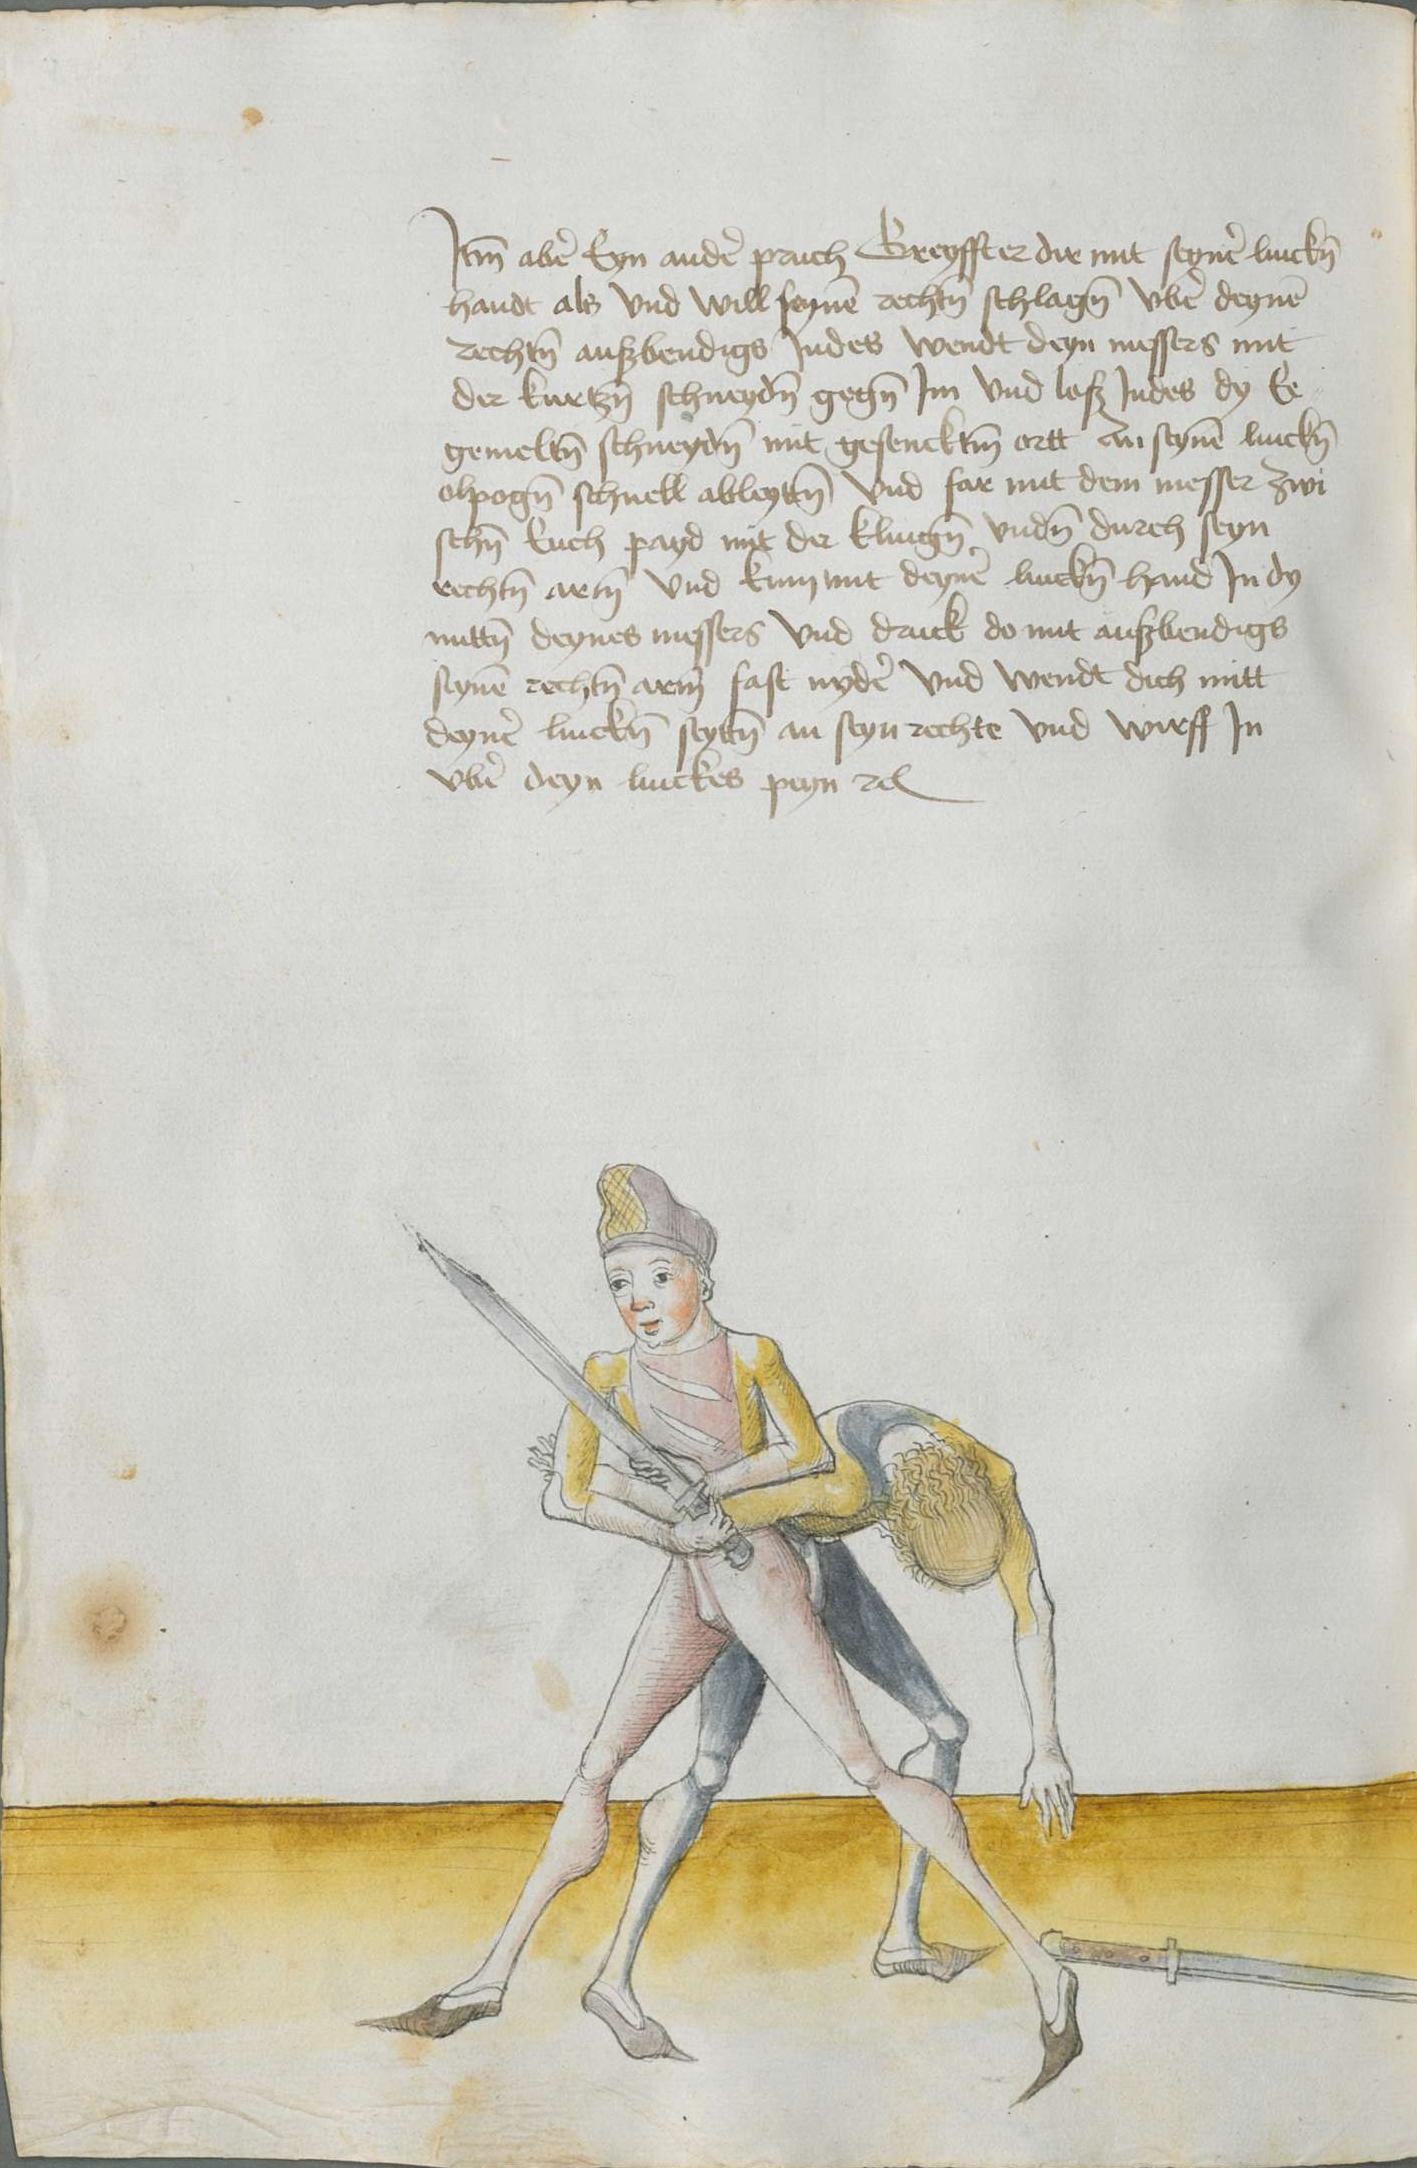 Itm̄ aber̄ Eyn ander̄ pruch Greyfft er dir mit seyner̄ linckn̄
handt als vnd will seynē rechtn̄ schlagn̄ vber̄ deynē
rechtn̄ außbendigs Indes wendt deyn messers mit
der kurtzn̄ schneydn̄ gegn̄ Im vnd loß Indes dy Ee
gemeltn̄ schneydn̄ mit gesencktm̄ ortt An seynē linckn̄
olpogn̄ schnell ableyttn̄ vnd far mit dem messer zwi
schn̄ Euch payd mit der klingn̄ vndn̄ durch seyn
rechtn̄ arm̄ vnd kum mit deyner̄ linckn̄ hand In dy
mittn̄ deynes messers vnd druck do mit außbendigs
seynē rechtn̄ arm̄ fast nyder̄ vnd wendt dich mitt
deyner̄ linckn̄ seyttn̄ an seyn rechte vnd wirff In
vber̄ deyn linckes peyn ꝛc